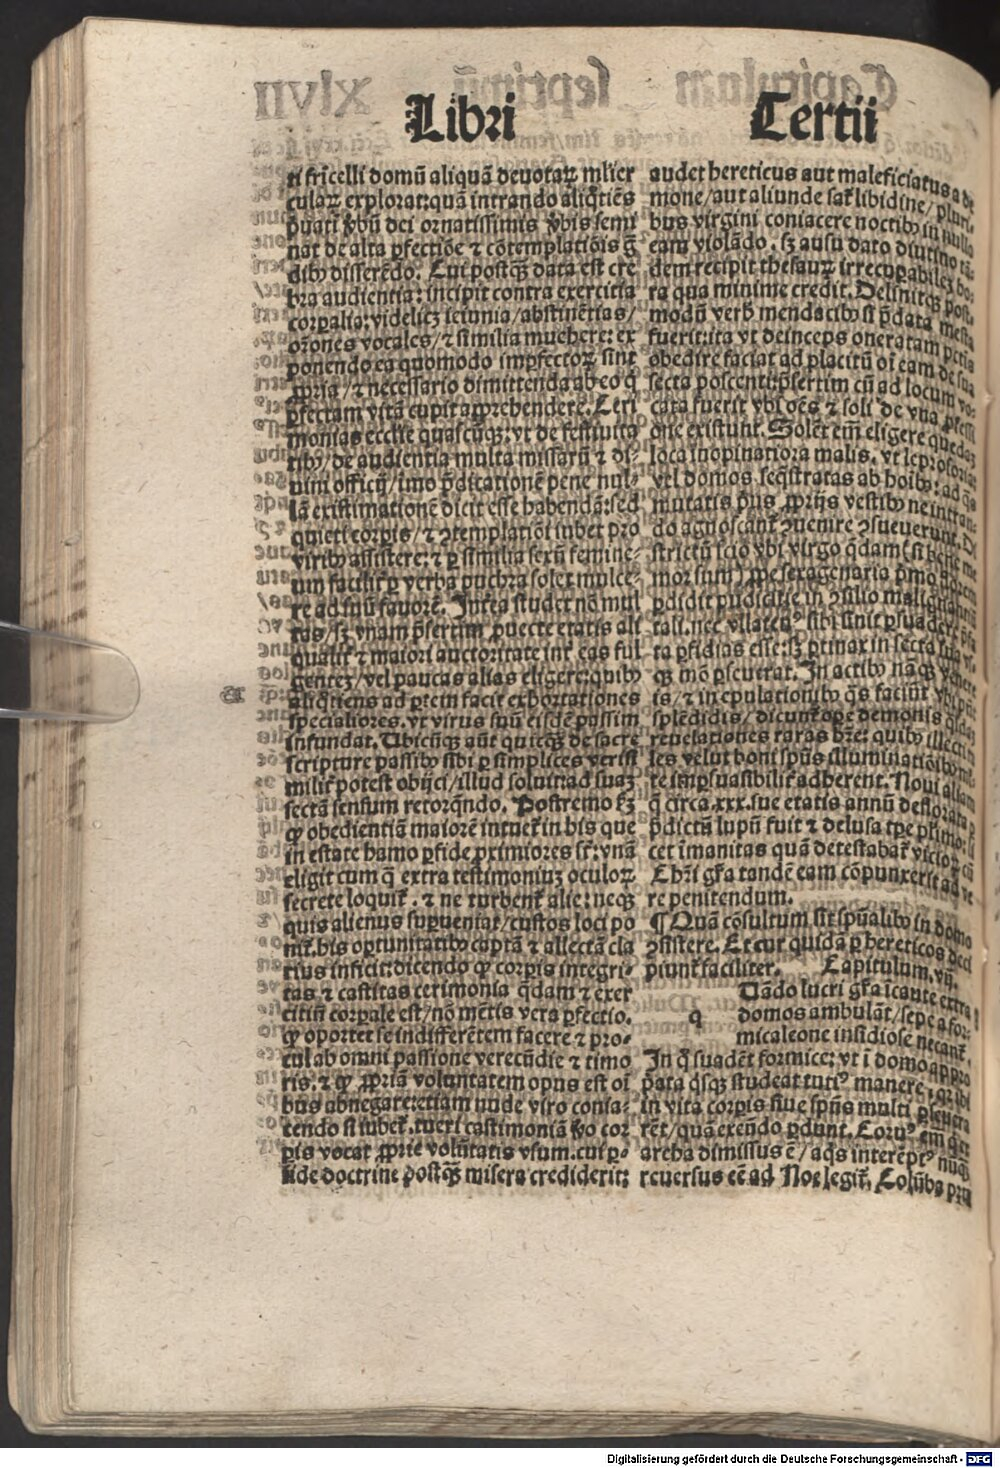 Libri Tertii
ti fricelli domũ aliquã deuotaꝝ ml̃ier
culaꝝ explorat: quã intrando aliq̃tiẽs
nat de alta ꝑfectiõe ⁊ cõtemplatiõis g̃
dibꝰ differẽdo. Cui postq̃ȝ data est cre
bra audientia: incipit contra exercitia
corꝑalia: videlicȝ ieiunia/abstinẽtias/
or̃ones vocales/⁊ similia
ponendo ea quomodo imꝑfectoꝝ sint
ꝓpria/⁊ necessario dimittenda ab eo q̇
ꝑfectam vitã cupit apprehendere. Ceri
monias ecclie quascũqȝ: vt de festiuita
tibꝰ/de audientia multa missarũ ⁊ di-
uini officij/imo p̃dicationẽ pene nul-
lã existimationẽ dicit esse habendã: sed
quieti corꝑis/⁊ ꝯtemplatiõi iubet pro
viribꝰ assistere: ⁊ ꝑ similia sexũ femine-
um facilit̃ ꝑ verba pulchra solet mulce-
re ad suũ fauorẽ. Int̃ea studet nõ mul
tas/sȝ vnam p̃sertim ꝓuecte etatis ali
qualit̃ ⁊ maiori auctoritate int̃ eas ful
genteȝ/vel paucas alias eligere: quibꝰ
aliq̃tiens ad ꝑtem facit exhortationes
specialiores. vt virus suũ eisdẽ passim
infundat. Ubicũqȝ aũt quicq̃ȝ de sacre
scripture passibꝰ sibi ꝑ simplices verisi
milit̃ potest obijci/illud soluit ad suaȝ
sectã sensum retorq̃ndo. Postremo sȝ
ꝙ obedientiã maiorẽ intuet̃ in his que
in estate hamo ꝑfide ꝓximiores st̃: vnã
eligit cum q̃ extra testimoniuȝ oculoꝝ
secrete loquit̃. ⁊ ne turbent̃ alie: neqȝ
quis alienus suꝑueniat/custos loci po
nit̃. his oꝑtunitatibꝰ captã ⁊ allectã cla
rius inficit: dicendo ꝙ corꝑis integri-
tas ⁊ castitas cerimonia q̃dam ⁊ exer
citiũ corꝑale est/nõ mẽtis vera ꝑfectio.
ꝙ oportet se indifferẽtem facere ⁊ pro-
cul ab omni passione verecũdie ⁊ timo
ris. ⁊ ꝙ ꝓpriã voluntatem opus est oĩ
bus abnegare: etiam nude viro conia-
cendo si iubet̃. tueri castimoniã ṽo cor
ꝑis vocat ꝓprie volũtatis vsum. cui ꝑ-
fide doctrine postq̃ȝ misera crediderit:
audet hereticus aut maleficiatus a de
mone/aut aliunde sat̃ libidine/pluri-
bus virgini coniacere noctibꝰ in nullo
eam violãdo. sȝ ausu dato diutino tã
dem recipit thesauꝝ irrecuꝑabileȝ ho-
ra qua minime credit. Delinitqȝ post-
modũ verb̃ mendacibꝰ si p̃data mesta
fuerit: ita vt deinceps oneratam
obedire faciat ad placitũ oĩ eam de sua
secta poscenti: p̃sertim cũ ad locum vo-
cata fuerit vbi oẽs ⁊ soli de vna
one existunt. Solẽt em̃ eligere quedaȝ
loca inopinatiora malis. vt leprosorias
vel domos seq̃stratas ab hoĩbꝰ: ad q̃s
mutatis pr̃us ꝓprijs vestibꝰ ne intran
do agnoscant̃ ꝯuenire ꝯsueuerunt. Di
strictũ scio vbi virgo q̃dam (si bene me
mor sum) ꝓpe sexagenaria p̃mo florem
ꝑdidit pudicitie in ꝯsilio malignantiũ
tali. nec vllatenꝰ sibi sinit ꝑsuaderi
ta ꝑfidias esse: sȝ ꝑtinax in secta sua
qȝ mõ ꝑseuerat. In actibꝰ nãqȝ venere
is/⁊ in epulationibꝰ q̃s faciũt vbi
splẽdidis/dicunt̃ ope demonis q̃sdaȝ
reuelationes raras hr̃e: quibꝰ illecti
les velut boni spũs illuminatiõibꝰ
te imꝑsuasibilit̃ adherent. Noui aliam
q̃ circa .xxx. sue etatis annũ deflorata ꝑ
p̃dictũ lupũ fuit ⁊ delusa tꝑe primo: li
cet ĩmanitas quã detestabat̃ vicioꝝ cũ
Chr̃i gr̃a tandẽ eam cõpunxerit ad ve
re penitendum.
¶ Quã cõsultum sit spũalibꝰ in domo
ꝯsistere. Et cur quidã ꝑ hereticos deci
piunt̃ faciliter. Capitulum .vij.
q Uãdo lucri gr̃a ĩcante extra
domos ambulãt/sepe a for-
micaleone insidiose necant̃.
In q̃ suadẽt formice: vt ĩ domo appro
pata q̃sqȝ studeat tutiꝰ manere. qꝛ ibi
in vita corꝑis siue spũs multi
rẽt/quã exeũdo ꝑdunt. Coruꝰ em̃ q̃ ex
archa dimissus ẽ/aq̃s interẽptꝰ nũq̃ȝ
reuersus eẽ ad Noe legit̃. Colũba